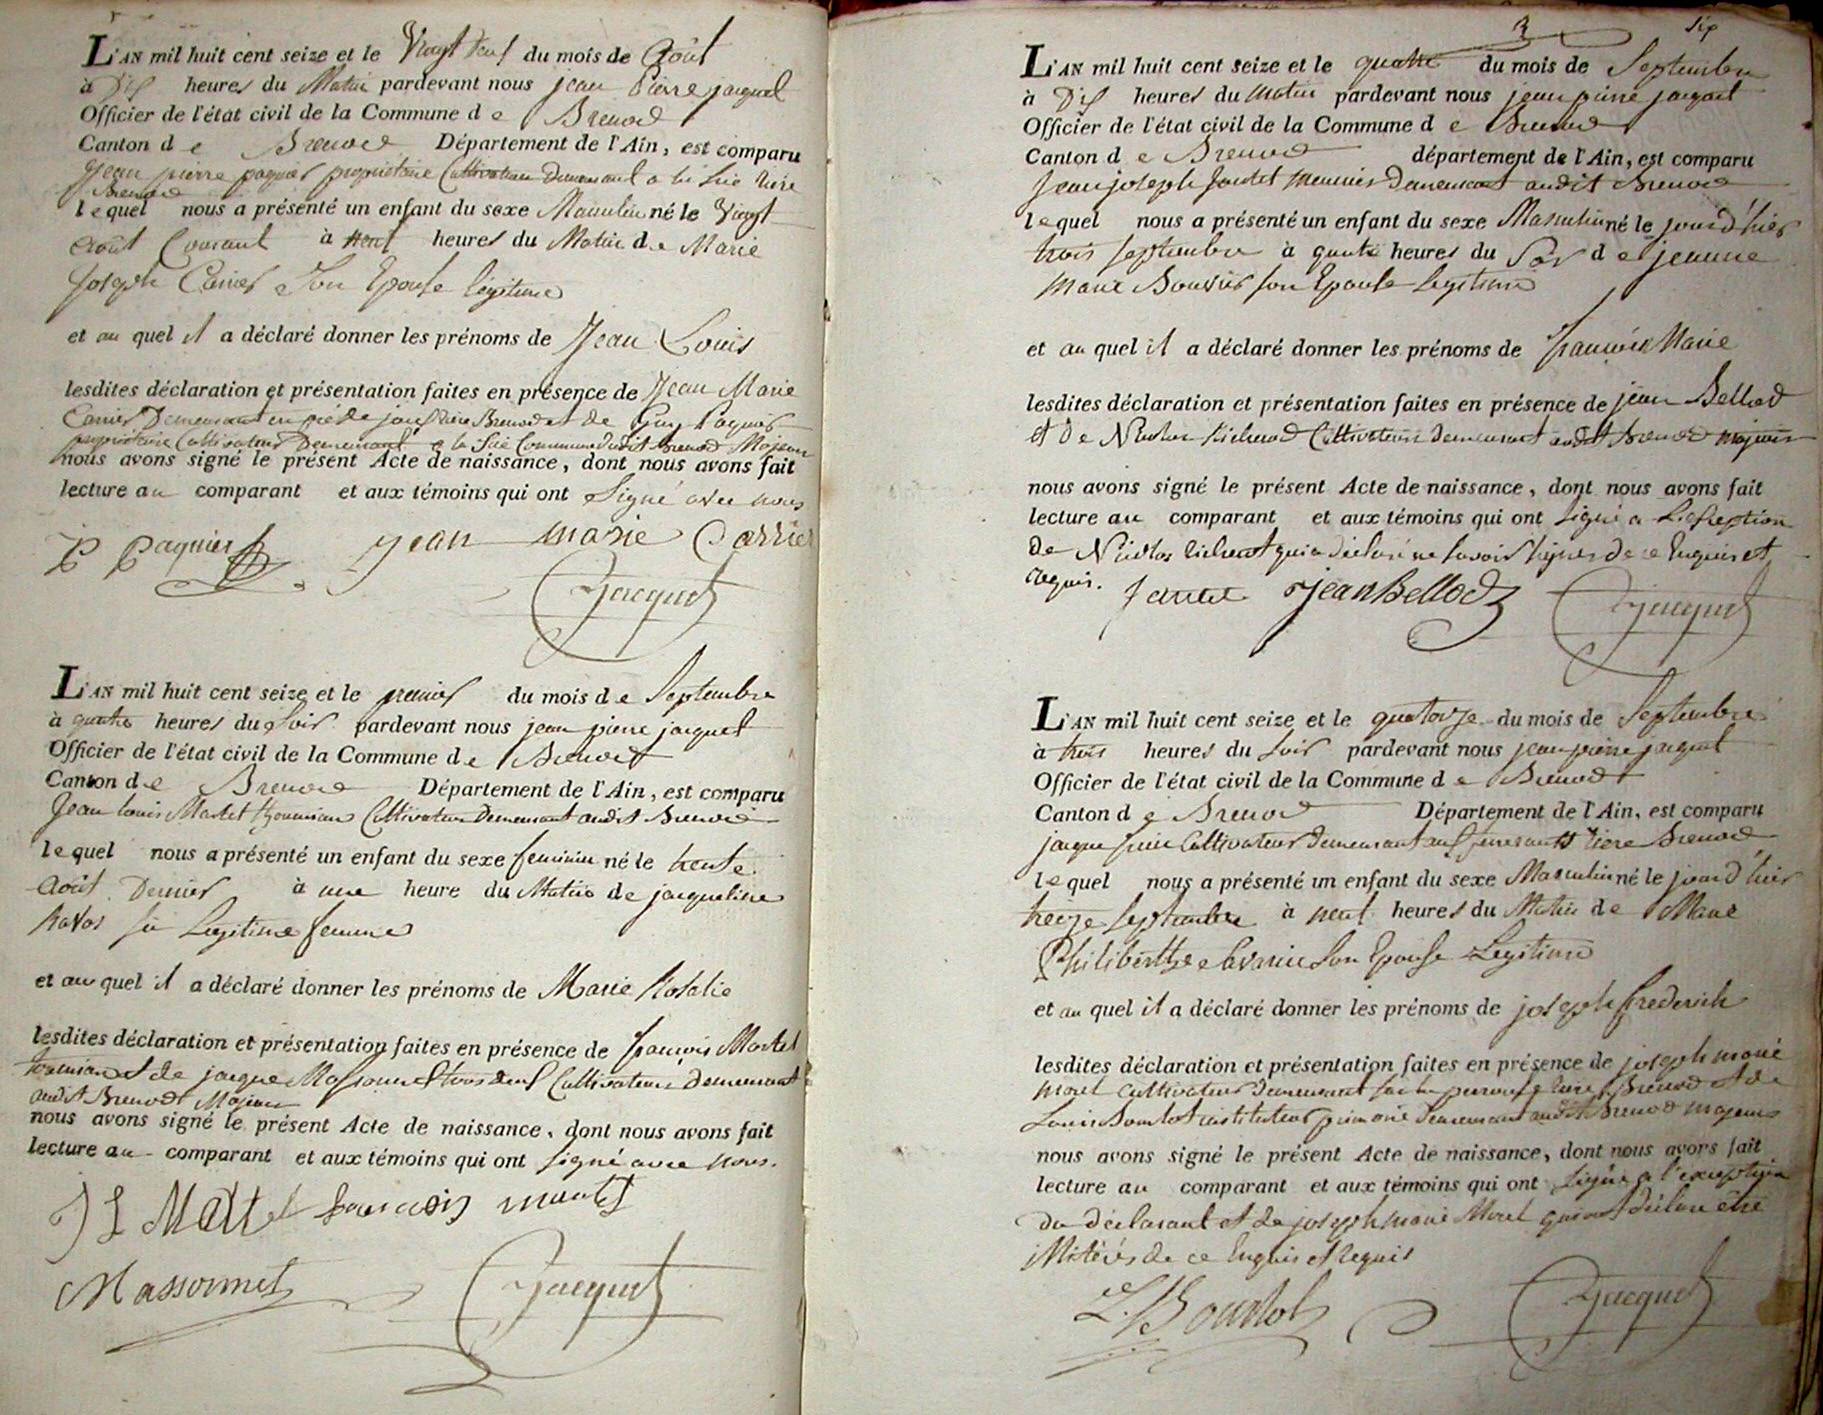 L'AN mil huit cent seize et le Vingt deux du mois de Août
à Dix heures du Matin pardevant nous jean Pierre jacquet
Officier de l'état civil de la Commune de Brenod
Canton de Brenod Département de l'Ain, est comparu
Jean pierre paquier propriétaire Cultivateur Demeurant a la
Brenod
lequel nous a présenté un enfant du sexe Masculin né le Vingt
Août Courant à neuf heures du Matin de Marie
Joseph Carrier Son Epouse légitime
et au quel il a déclaré donner les prénoms de Jean Louis
lesdites déclaration et présentation faites en présence de Jean Marie
Carrier Demeurant Brenod et de Guy Paquier
propriétaire Cultivateur Demeurant a la Commune dudit Brenod Majeurs
nous avons signé le présent Acte de naissance, dont nous avons fait
lecture au comparant et aux témoins qui ont Signé avec nous
P Paquier jean marie Carrier
Jacquet
L'AN mil huit cent seize et le premier du mois de Septembre
à quatre heures du Soir pardevant nous jean pierre jacquet
Officier de l'état civil de la Commune de Brenod
Canton de Brenod Département de l'Ain, est comparu
Jean Louis Martel Cultivateur Demeurant audit Brenod
lequel nous a présenté un enfant du sexe feminin né le trente
Août Dernier à une heure du Matin de jacqueline
sa Legitime femme
et au quel il a déclaré donner les prénoms de Marie Rosalie
lesdites déclaration et présentation faites en présence de françois Martel
et de jacque Massonnet tous deux Cultivateurs Demeurant
audit Brenod Majeurs
nous avons signé le présent Acte de naissance, dont nous avons fait
lecture au comparant et aux témoins qui ont signé avec nous.
J L Martel francois martel
Massonnet Jacquet
3 Six
L'AN mil huit cent seize et le quatre du mois de Septembre
à Dix heures du matin pardevant nous jean pierre jacquet
Officier de l'état civil de la Commune de Brenod
Canton de Brenod département de l'Ain, est comparu
Jean joseph Meunier Demeurant audit Brenod
lequel nous a présenté un enfant du sexe Masculin né le jour d'hier
trois septembre à quatre heures du Soir de jeanne
Marie Bouvier son Epouse Legitime
et au quel il a déclaré donner les prénoms de françois Marie
lesdites déclaration et présentation faites en présence de jean Bellod
et de Nicolas Cultivateurs demeurant audit Brenod majeurs
nous avons signé le présent Acte de naissance, dont nous avons fait
lecture au comparant et aux témoins qui ont signé a L'Exception
de Nicolas qui a déclaré ne savoir signer de ce Enquis et
requis. jean Bellod Jacquet
L'AN mil huit cent seize et le quatorze du mois de Septembre
à trois heures du Soir pardevant nous jean pierre jacquet
Officier de l'état civil de la Commune de Brenod
Canton de Brenod Département de l'Ain, est comparu
jacque Cultivateur demeurant rière Brenod
lequel nous a présenté un enfant du sexe Masculin né le jour d'hier
treize Septembre à neuf heures du Matin de Marie
Philiberthe Son Epouse Legitime
et au quel il a déclaré donner les prénoms de joseph frederich
lesdites déclaration et présentation faites en présence de joseph marie
morel cultivateur demeurant sur la rière Brenod et de
Louis instituteur primaire Demeurant audit Brenod majeurs
nous avons signé le présent Acte de naissance, dont nous avons fait
lecture au comparant et aux témoins qui ont signé a l'exception
du déclarant et de joseph marie Morel qui ont déclaré être
illitérés de ce Enquis et Requis
Jacquet